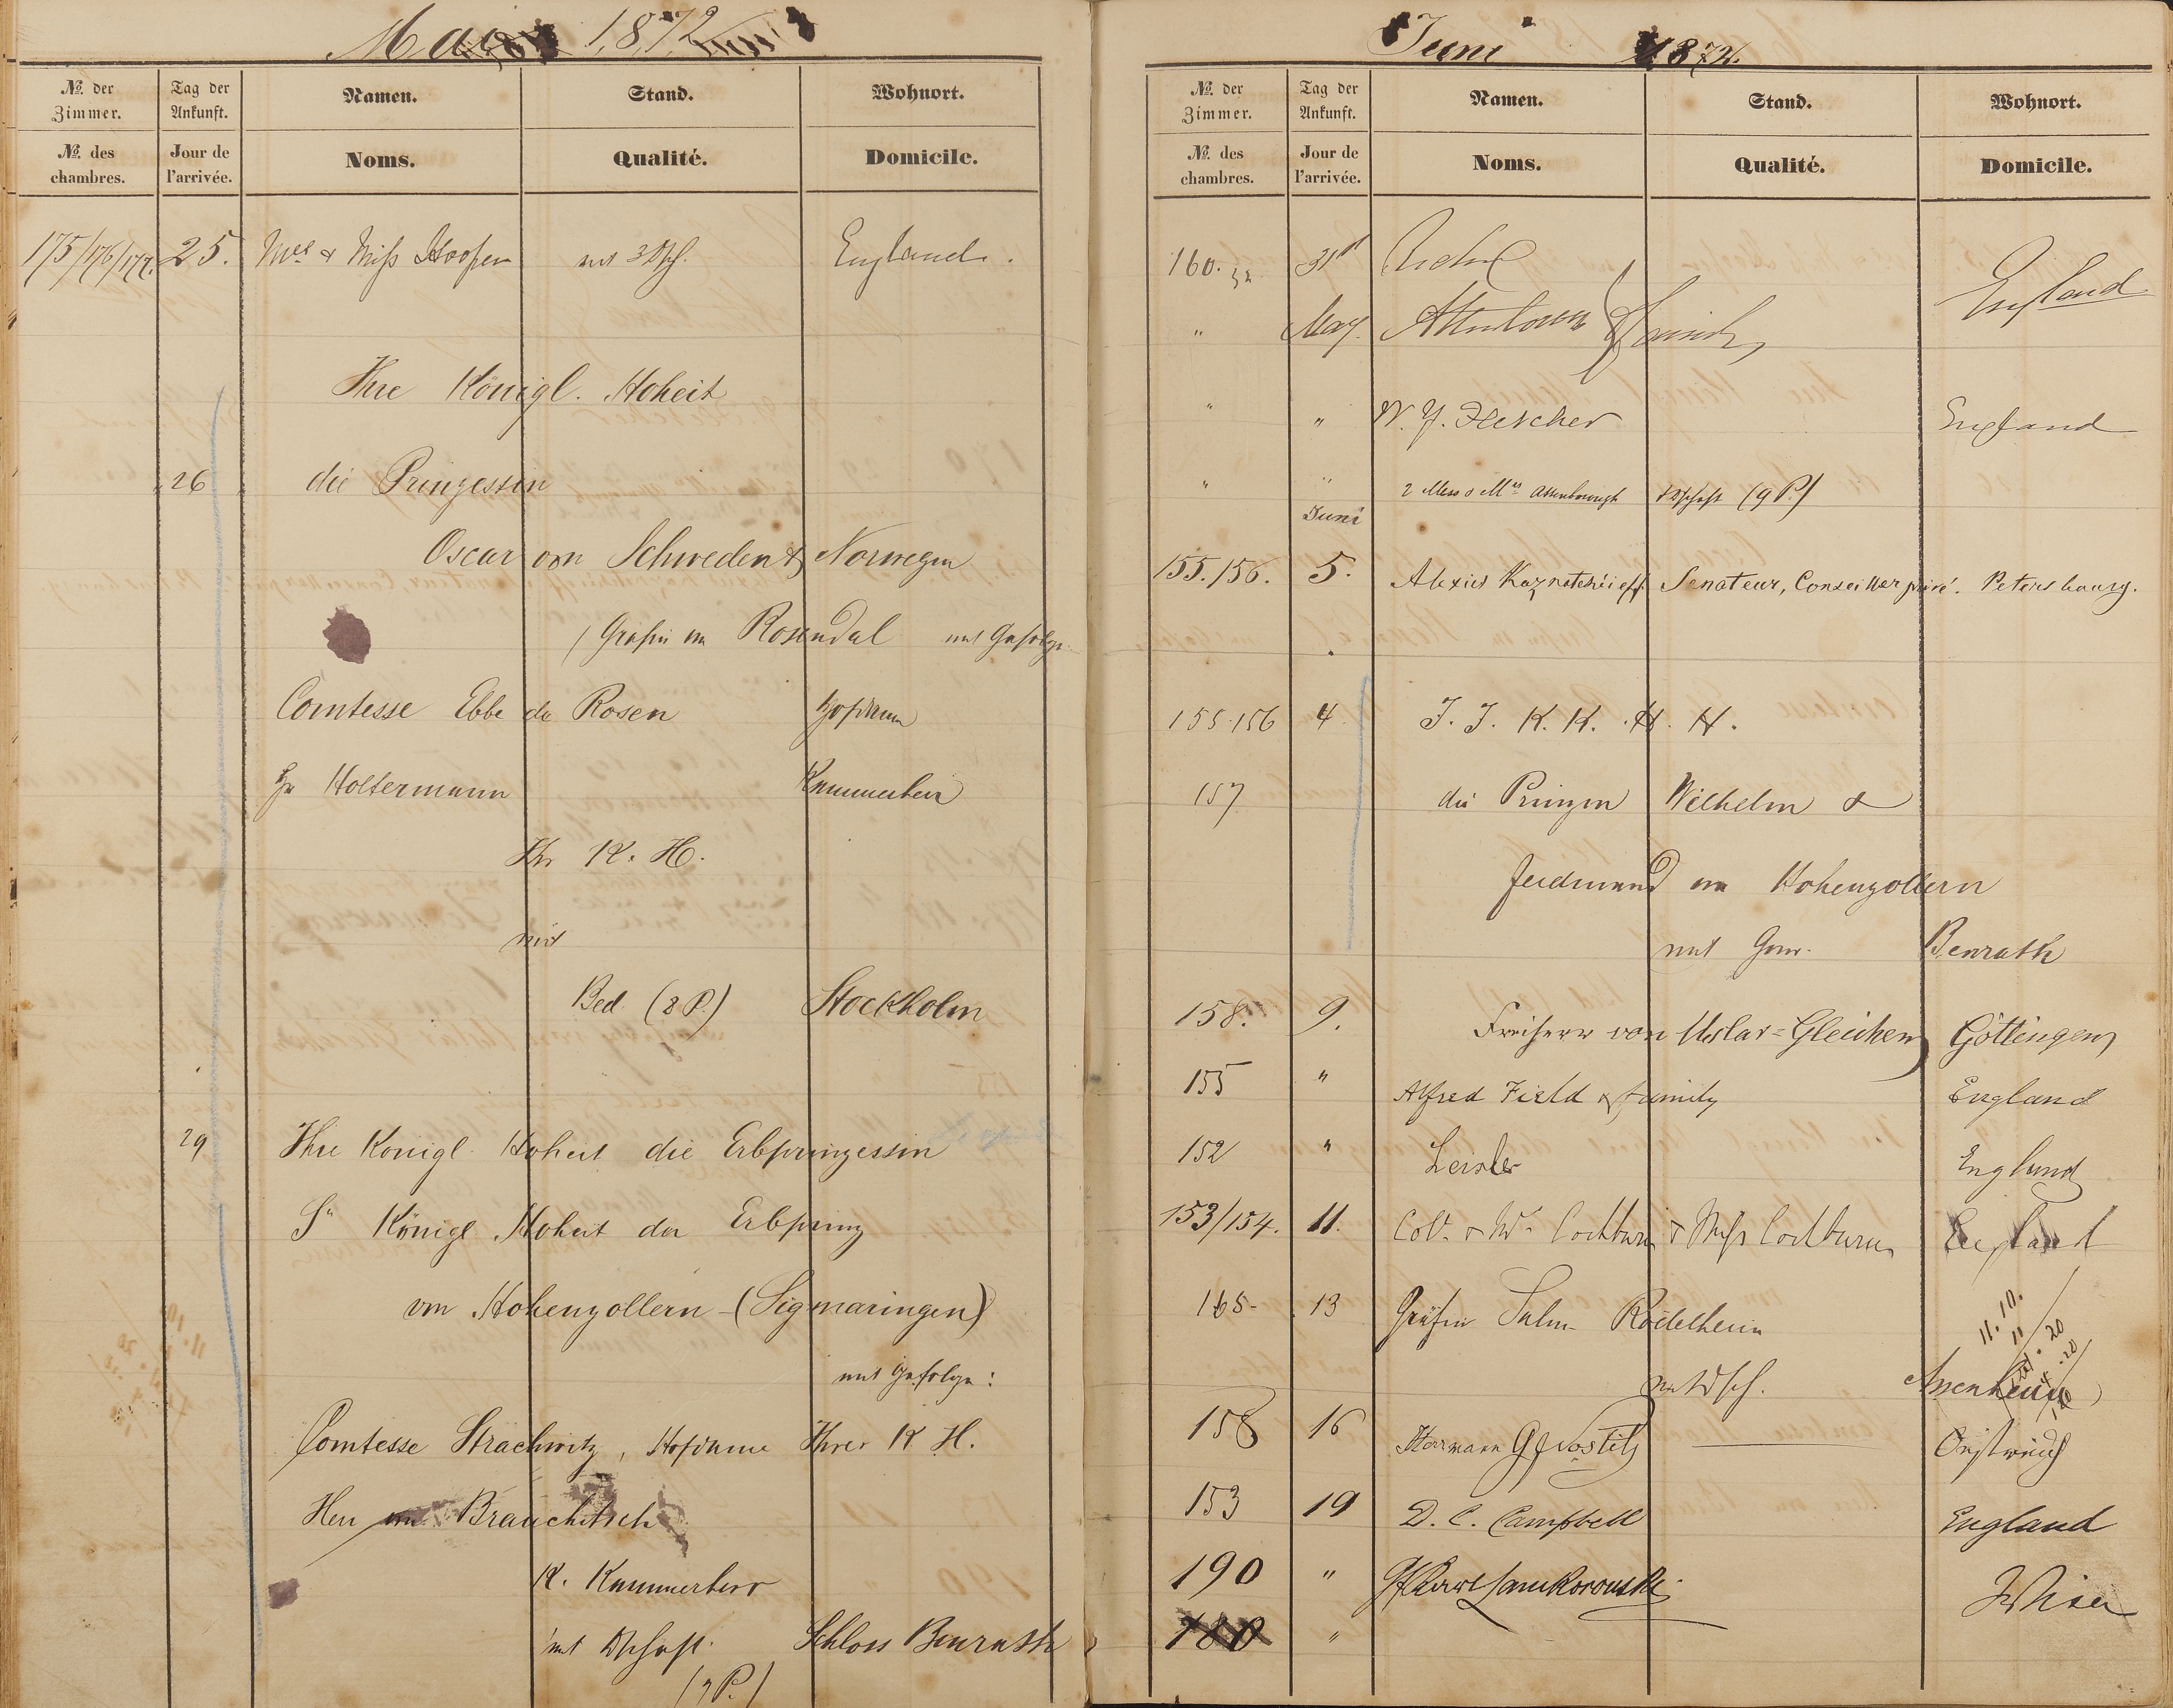 Mai 1872
№ der Zimmer. Tag der Ankunft. Namen. Stand. Wohnort.
№ des chambres. Jour de l'arrivée. Noms. Qualité. Domicile.
175/176/177. 25. Mrs & Miss Hooper mit England.
Ihre Königl. Hoheit
26 die Prinzessin
Oscar von Schweden & Norwegen
(Gräfin von Rosendal mit Gefolge
Comtesse Ebbe de Rosen Hofdame
Hr Holtermann Kammerherr
Ihr K. H.
mit
Bed. (8 P.) Stockholm
29 Ihre Königl. Hoheit die Erbprinzessin
Sr Königl. Hoheit der Erbprinz
von Hohenzollern-(Sigmaringen)
mit Gefolge:
Comtesse Strachwitz, Hofdame Ihrer K H.
Herr von Brauchitsch
K. Kammerherr
mit Dschaft. Schloss Benrath
Juni 1872.
№ der Zimmer. Tag der Ankunft. Namen. Stand. Wohnort.
№ des chambres. Jour de l'arrivée. Noms. Qualité. Domicile.
160. 31st England
" May
" " W. Y. Fletcher England
" " 2 Attenborough & Dschaft (9 P.)
Juni
155./156. 5. Alexies Kaznatcheieff Senateur, Conseiller privé. Petersbourg.
155-156 4 J. J. K. K. H. H.
157 die Prinzen Wilhelm &
Ferdinand von Hohenzollern
mit Gouv. Benrath
158. 9. Freiherr von Uslar-Gleichen Göttingen
155 " Alfred Field & family England
152 " Leisler England
153/154. 11. Col. & Mrs Cockburn & Miss Cockburn England
165- 13 Gräfin Salm Rödelheim
mit Dsch. Assenheim
158 16 Hermann Gf Nostitz Östreich
153 19 D. C. Campbell England
190 " Gf Karl Lanckoronski Wien
180 "